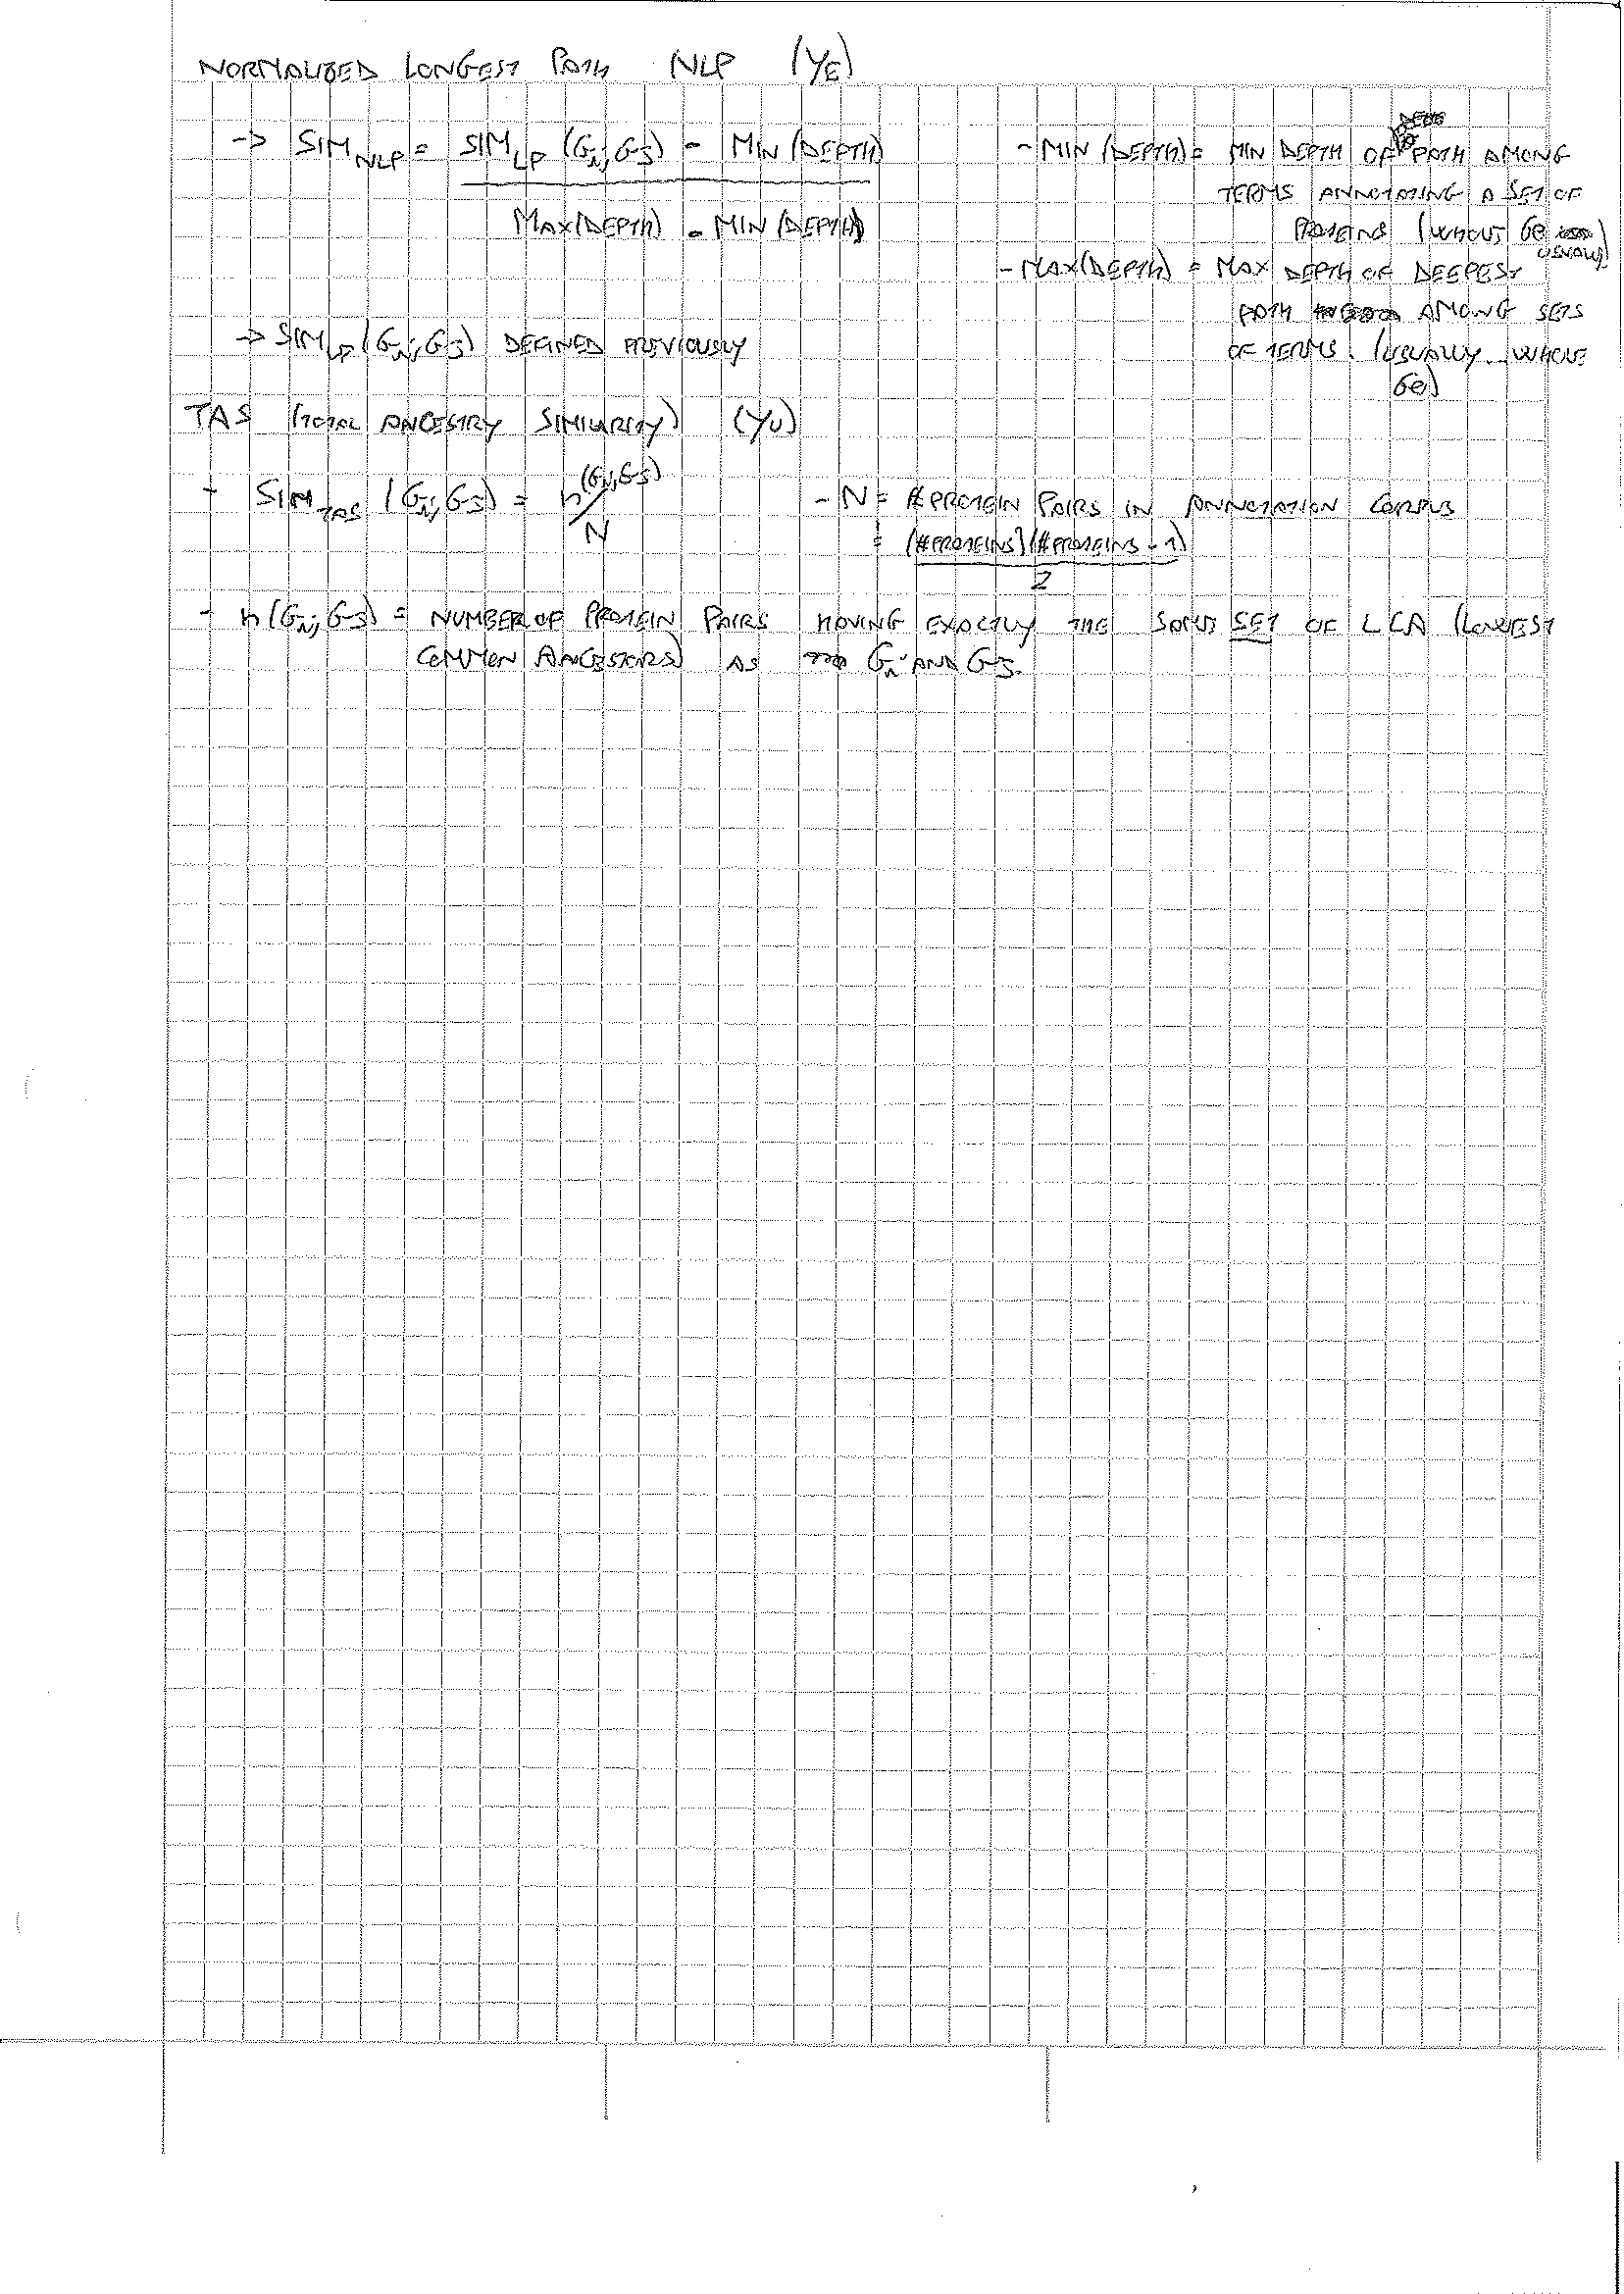 NORMALIZED LONGEST PATH NLP (YE)
-> SIM_NLP = SIM_LP (Gi, GJ) - MIN (DEPTH)
MAX(DEPTH) - MIN (DEPTH)
- MIN (DEPTH) = MIN DEPTH OF PATH AMONG
TERMS ANNOTATING A SET OF
PROTEINS (WHOLE GO USUALLY)
- MAX(DEPTH) = MAX DEPTH OF DEEPEST
PATH AMONG SETS
OF TERMS (USUALLY WHOLE
GO)
-> SIM_LP (Gi, GJ) DEFINED PREVIOUSLY
TAS (TOTAL ANCESTRY SIMILARITY) (YU)
- SIM_TAS (Gi, GJ) = n(Gi, GJ) / N
- N = # PROTEIN PAIRS IN ANNOTATION CORPUS
= (#PROTEINS)(#PROTEINS - 1)
2
- n(Gi, GJ) = NUMBER OF PROTEIN PAIRS HAVING EXACTLY THE SAME SET OF LCA (LOWEST
COMMON ANCESTORS) AS Gi AND GJ.